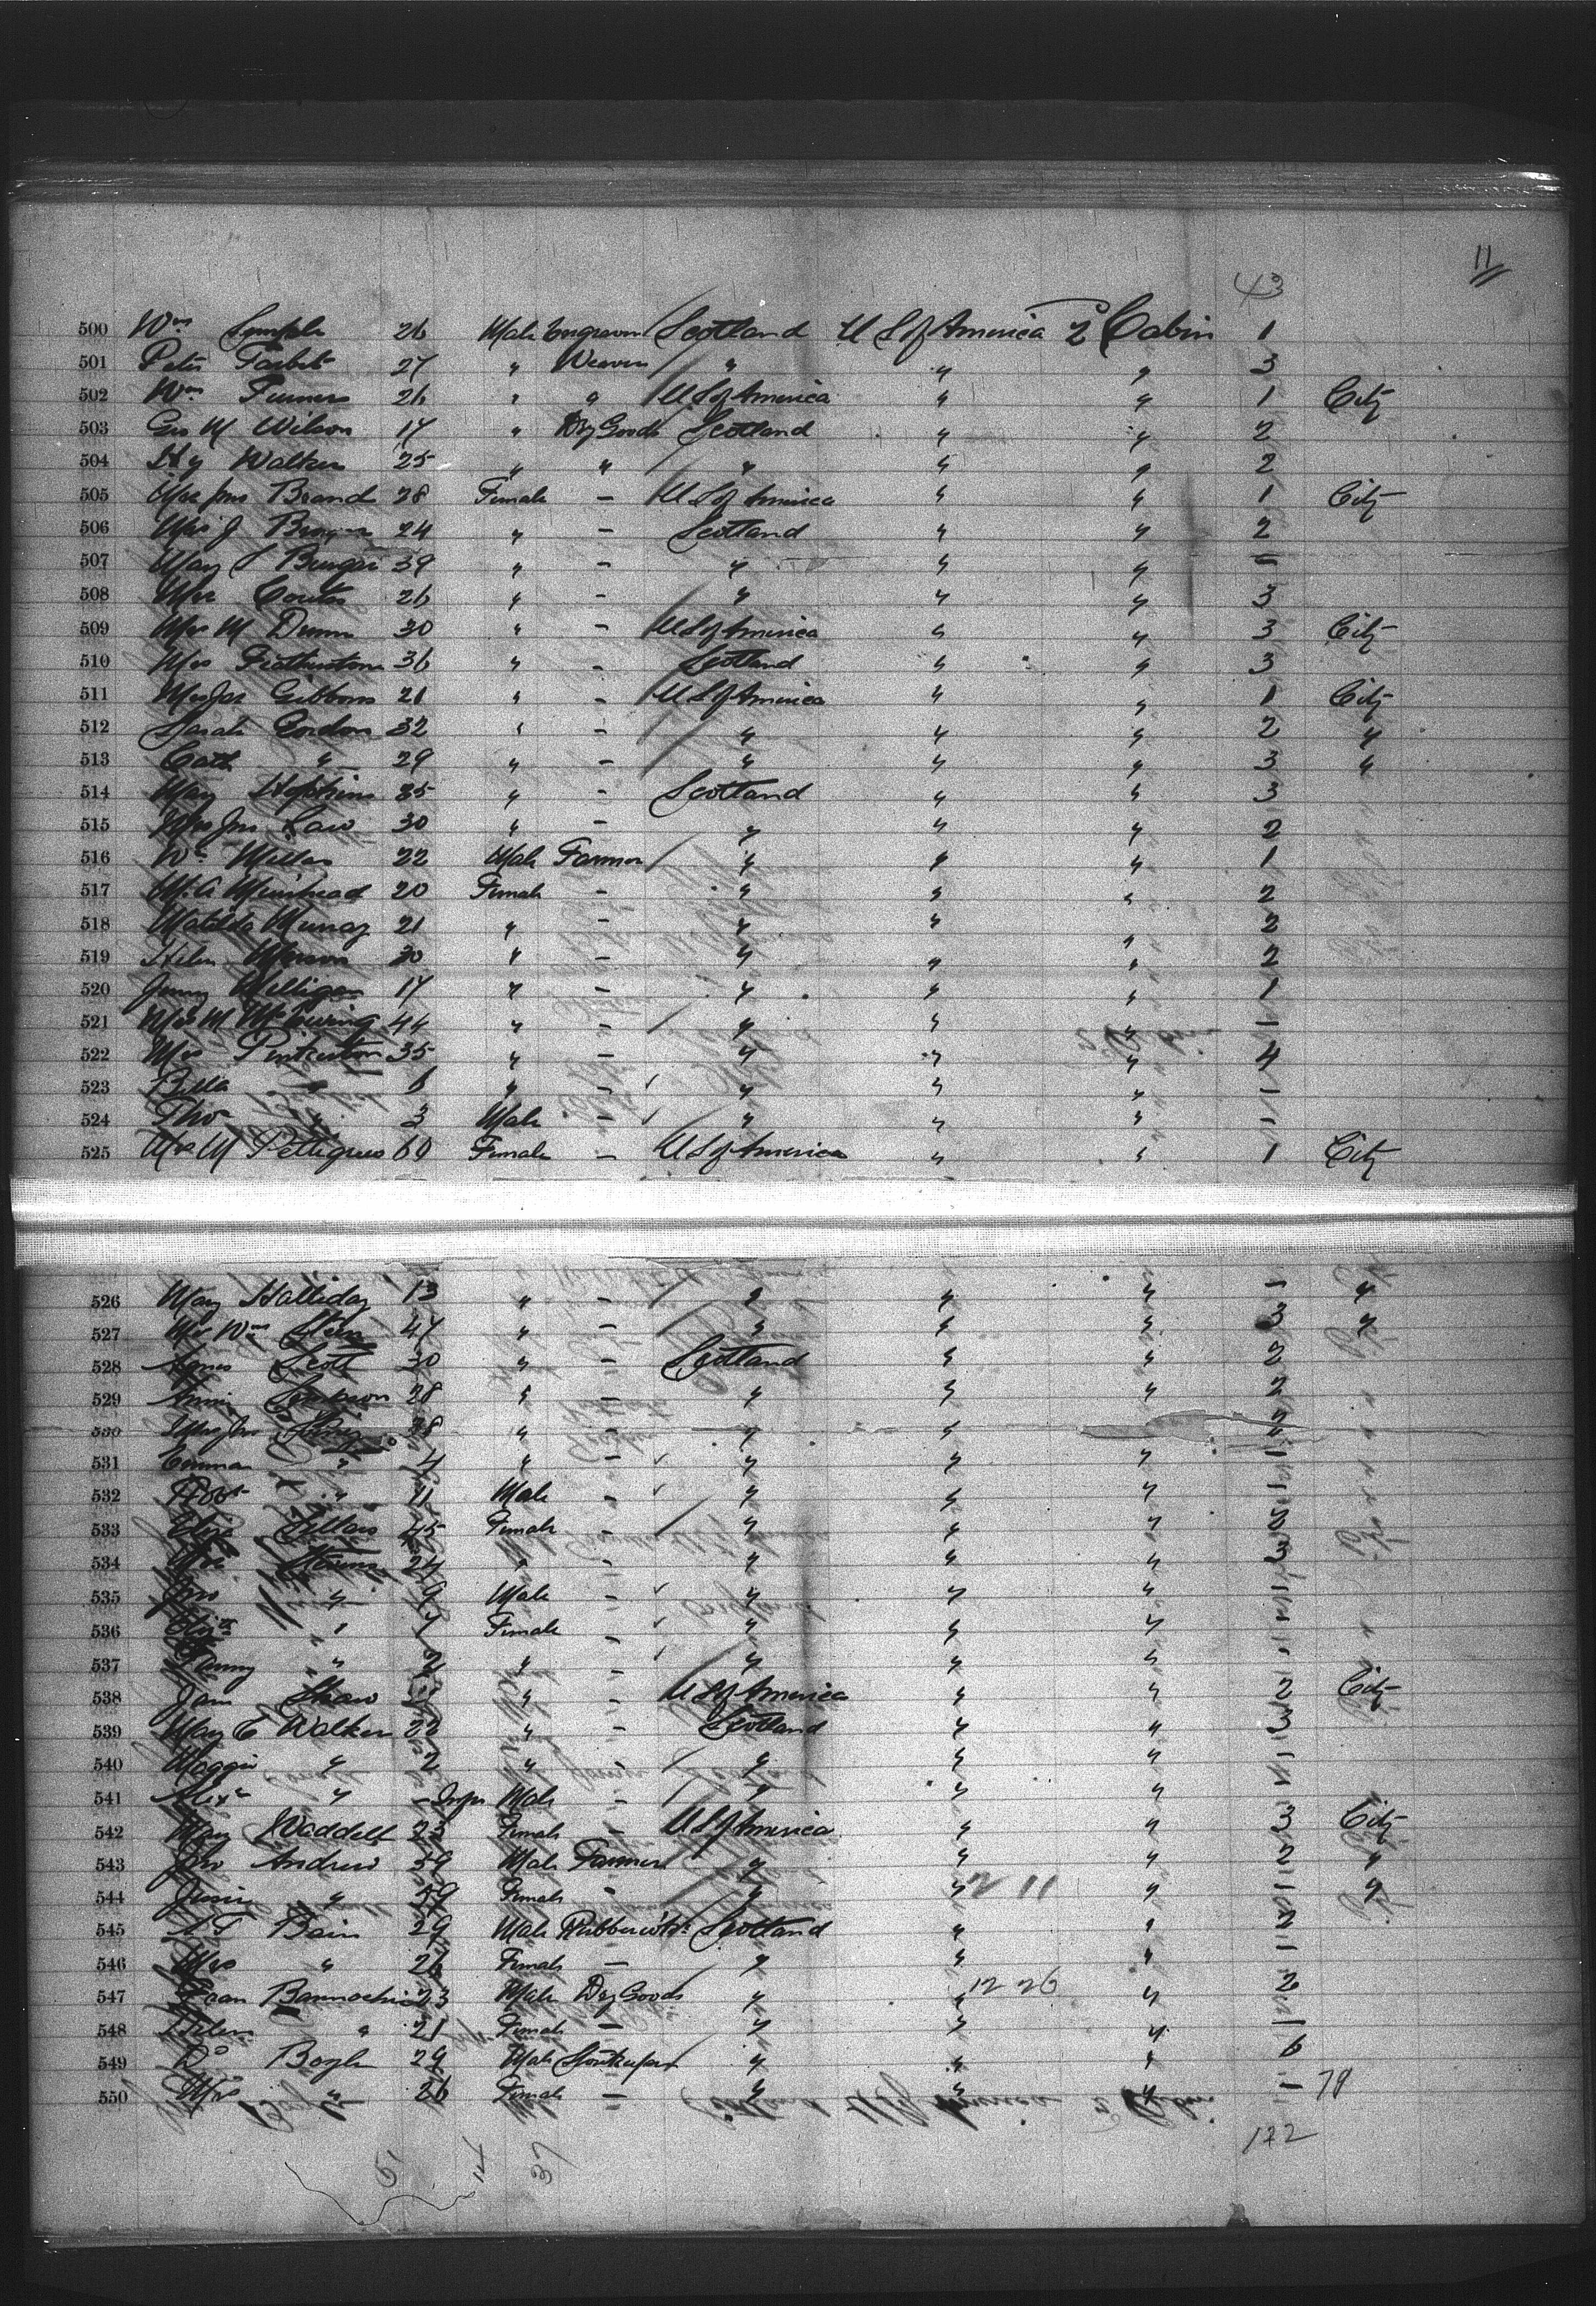 11
43
500 Wm Semple 26 Male Engraver Scotland U S of America 2d Cabin 1
501 Peter Tarbet 27 " Weaver " " " 3
502 Wm 26 " " U S of America " " 1 City
503 Geo M Wilson 17 " Dry Goods Scotland " " 2
504 Hy Walker 25 " " " " " 2
505 Mrs Jno Brand 28 Female - U S of America " " 1 City
506 Mrs J 24 " - Scotland " " 2
507 Mary S 39 " - " " " -
508 Mrs Coutts 26 " - " " " 3
509 Mrs M Dunn 30 " - U S of America " " 3 City
510 Mrs 36 " - Scotland " " 3
511 Mrs Jas Gibbons 21 " - U S of America " " 1 City
512 Sarah Gordon 32 " - " " " 2 "
513 Cath " 29 " - " " " 3 "
514 Mary Hopkins 35 " - Scotland " " 3
515 Mrs Jno Law 30 " - " " " 2
516 Wm Miller 22 Male Farmer " " " 1
517 M. A Muirhead 20 Female - " " " 2
518 Matilda Murray 21 " - " " " 2
519 Helen 30 " - " " " 2
520 Jenny Milligan 17 " - " " " 1
521 Mrs M 44 " - " " " -
522 Mrs Pinkerton 35 " - " " " 4
523 Bella " " - " " " -
524 Tho " 3 Male - " " " -
525 Mrs M Pettigrew 60 Female - U S of America " " 1 City
526 Mary Halliday 13 " - " " " - "
527 Mrs Wm 47 " - " " " 3 "
528 Agnes Scott 30 " - Scotland " " 2
529 Annie Simpson 28 " - " " " 2
530 Mrs Jno 38 " - " " "
531 Emma " 4 " - " " " -
532 Robt " 11 Male - " " " -
533 Eliza Sellars 45 Female - " " "
534 Mrs 24 " - " " " 3
535 Jno " 9 Male - " " " -
536 Eliz " Female - " " " -
537 " 2 " - " " " -
538 Jane Shaw " - U S of America " " 2 City
539 Mary E Walker 22 " - Scotland " " 3
540 Maggie " 2 " - " " " -
541 Alexr " - Infn Male - " " " -
542 Mary Waddell 23 Female - U S of America " " 3 City
543 Jno Andrew 59 Male Farmer " " " 2 "
544 Jessie " 59 Female - " " 2 11 " - "
545 Bain 29 Male Scotland " " 2
546 Mrs " 26 Female - " " " -
547 23 Male Dry Goods " " 12 26 " 2
548 Helen " 21 Female - " " " -
549 Do Boyle 29 Male " " " 6
550 Mrs " 26 Female - " " " - 79
122
51 14 37